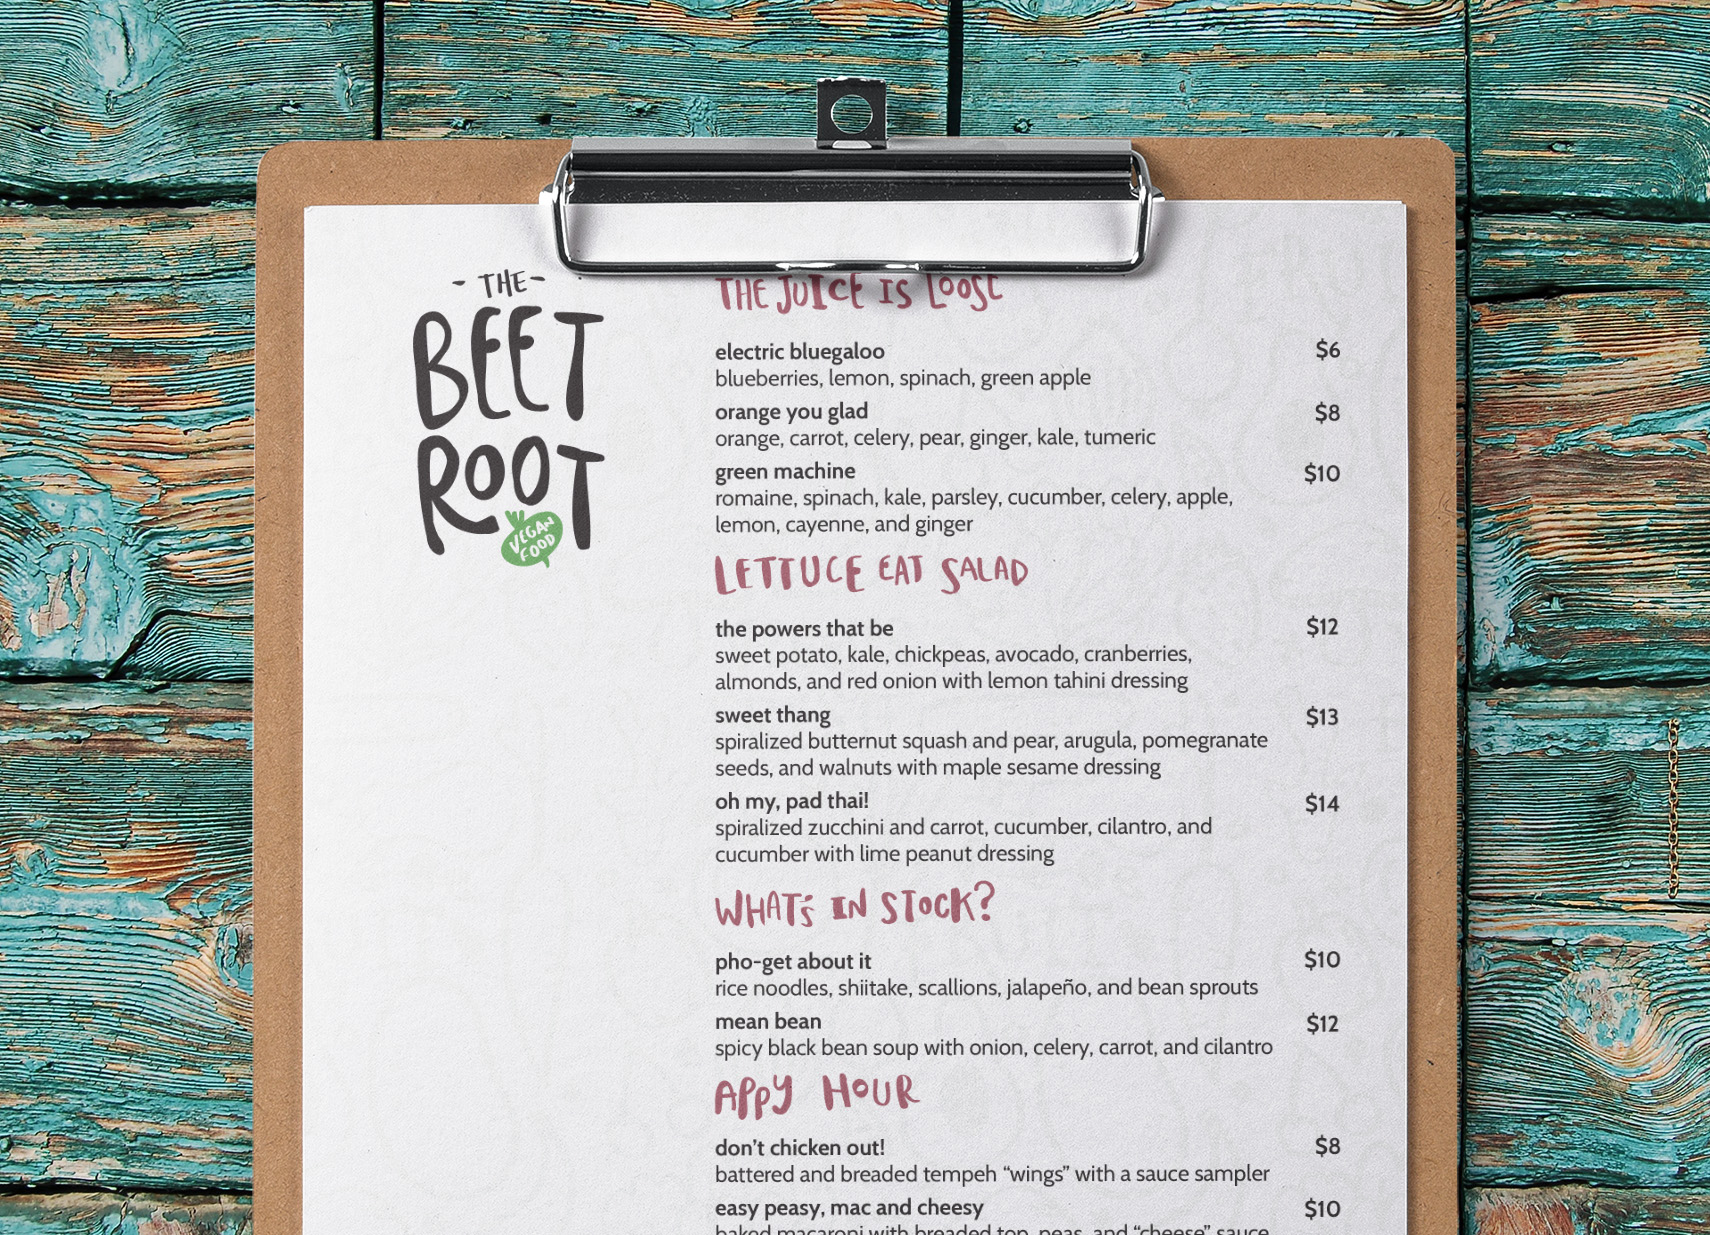 - THE -
BEET
ROOT
VEGAN
FOOD
THE JUICE IS LOOSE
electric bluegaloo $6
blueberries, lemon, spinach, green apple
orange you glad $8
orange, carrot, celery, pear, ginger, kale, tumeric
green machine $10
romaine, spinach, kale, parsley, cucumber, celery, apple,
lemon, cayenne, and ginger
LETTUCE EAT SALAD
the powers that be $12
sweet potato, kale, chickpeas, avocado, cranberries,
almonds, and red onion with lemon tahini dressing
sweet thang $13
spiralized butternut squash and pear, arugula, pomegranate
seeds, and walnuts with maple sesame dressing
oh my, pad thai! $14
spiralized zucchini and carrot, cucumber, cilantro, and
cucumber with lime peanut dressing
WHAT'S IN STOCK?
pho-get about it $10
rice noodles, shiitake, scallions, jalapeño, and bean sprouts
mean bean $12
spicy black bean soup with onion, celery, carrot, and cilantro
APPY HOUR
don't chicken out! $8
battered and breaded tempeh “wings” with a sauce sampler
easy peasy, mac and cheesy $10
baked macaroni with breaded top, peas, and “cheese” sauce